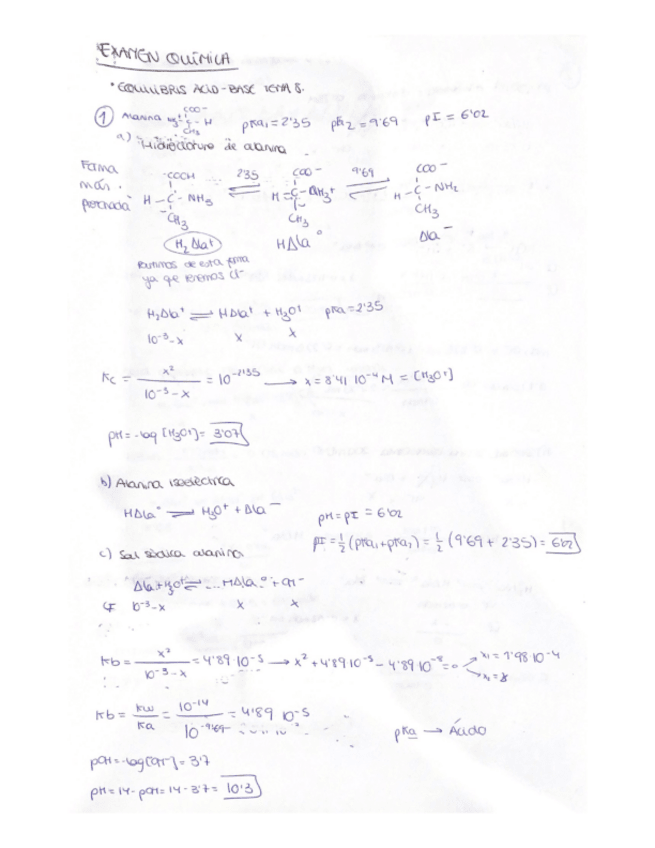 EXAMEN QUÍMICA
• EQUILIBRIS ÀCID-BASE TEMA 8.
① Alanina COO⁻ H CH₃ pKa₁ = 2'35 pK₂ = 9'69 pI = 6'02
a) Hidrocloruro de alanina
Forma más protonada
COOH 2'35 COO⁻ 9'69 COO⁻
H - C - NH₃ ⇌ H - C - NH₃⁺ ⇌ H - C - NH₂
CH₃ CH₃ CH₃
H₂Ala⁺ HAla° Ala⁻
Partimos de esta forma
ya que tenemos Cl⁻
H₂Ala⁺ ⇌ HAla⁺ + H₃O⁺ pKa = 2'35
10⁻³-x x x
Kc = x² / 10⁻³-x = 10⁻²'³⁵ → x = 8'41 10⁻⁴ M = [H₃O⁺]
pH = -log [H₃O⁺] = 3'07
b) Alanina isoeléctrica
HAla° ⇌ H₃O⁺ + Ala⁻ pH = pI = 6'02
pI = 1/2 (pKa₁ + pKa₂) = 1/2 (9'69 + 2'35) = 6'02
c) Sal sódica alanina
Ala + H₂O ⇌ HAla° + OH⁻
CF 10⁻³-x x x
Kb = x² / 10⁻³-x = 4'89·10⁻⁵ → x² + 4'89 10⁻⁵ - 4'89 10⁻⁸ = 0 x₁ = 1'98 10⁻⁴
Kb = Kw / Ka = 10⁻¹⁴ / 10⁻⁹'⁶⁹ = 4'89 10⁻⁵
pKa → Ácido
pOH = -log[OH⁻] = 3'7
pH = 14 - pOH = 14 - 3'7 = 10'3